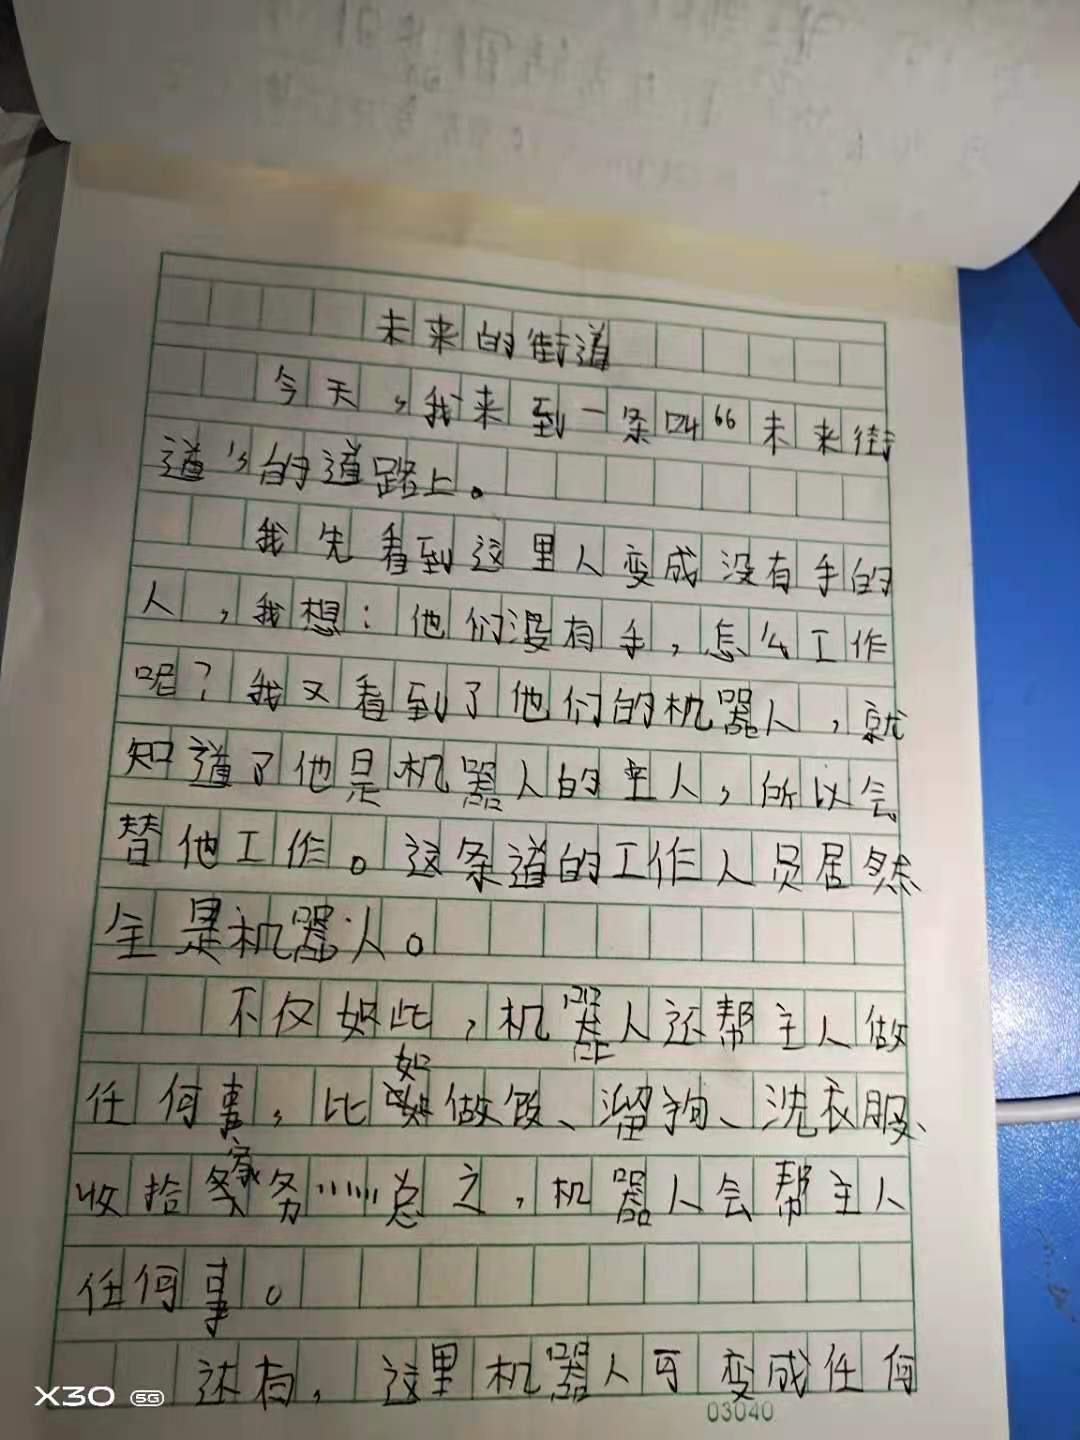 未来的街道
今天，我来到一条叫“未来街
道”的道路上。
我先看到这里人变成没有手的
人，我想：他们没有手，怎么工作
呢？我又看到了他们的机器人，就
知道了他是机器人的主人，所以会
替他工作。这条道的工作人员居然
全是机器人。
不仅如此，机器人还帮主人做
任何事，比如做饭、溜狗、洗衣服、
收拾家务……总之，机器人会帮主人
任何事。
还有，这里机器人可变成任何
X30 5G
03040